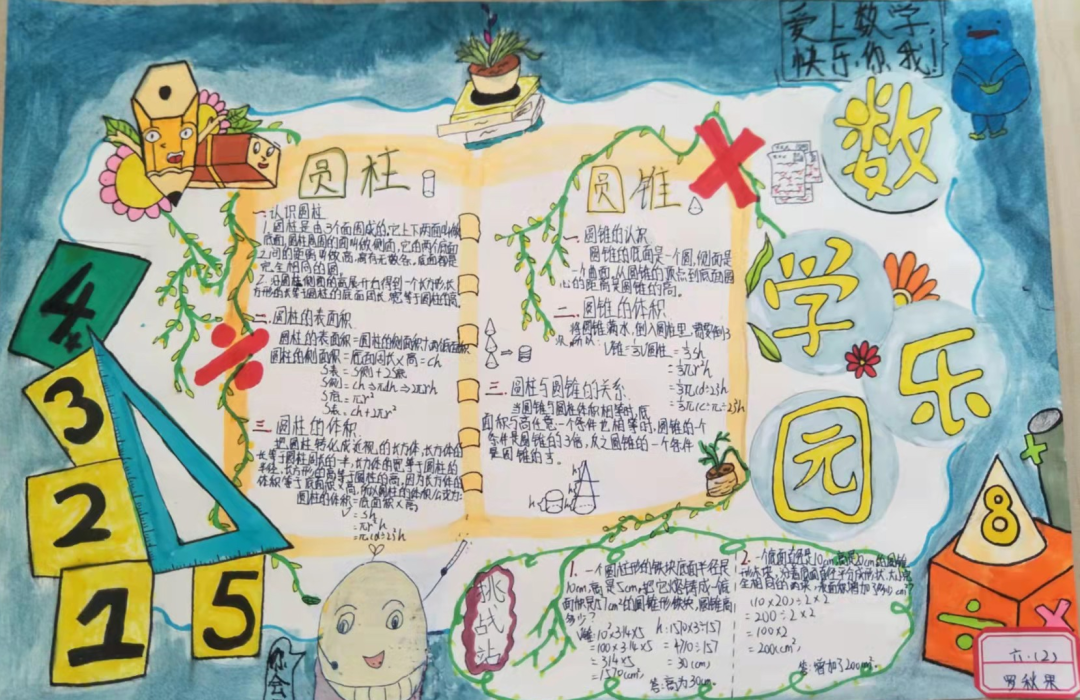 爱上数学,
快乐你我!
数
学
乐
园
圆柱
一.认识圆柱
1.圆柱是由3个面围成的,它上下两面叫做
底面,圆柱周围的面叫做侧面,它的两个底面
之间的距离叫做高,高有无数条,底面都是
完全相同的圆。
2.沿圆柱侧面的高展开
二.圆柱的表面积
圆柱的表面积=圆柱的侧面积+两个底面积
圆柱的侧面积=底面周长×高=ch
S表=S侧+2S底
S侧=ch⇒πdh⇒2πrh
S底=πr²
S表=ch+2πr²
三.圆柱的体积
把圆柱转化成近视的长方体,长方体的
长等于圆柱周长的一半,长方体的宽等于圆柱的
半径,长方形的高等于圆柱的高,因为长方体的
体积等于底面积×高,所以圆柱的体积公式为:
圆柱的体积=底面积×高
V=Sh
=πr²h
=π(d÷2)²h
圆锥
一.圆锥的认识
圆锥的底面是一个圆,侧面是
一个曲面,从圆锥的顶点到底面圆
心的距离是圆锥的高。
二.圆锥的体积
将圆锥满水,倒入圆柱里,需要倒3
次,所以:V锥=⅓V圆柱=⅓Sh
=⅓πr²h
=⅓π(d÷2)²h
=⅓π(C÷π÷2)²h
三.圆柱与圆锥的关系
当圆锥与圆柱体积相等时,底
面积与高任意一个条件也相等时,圆锥的一个
条件是圆锥的3倍,反之圆锥的一个条件
是圆锥的⅓。
h
h
4
3
2
1
5
8
÷
×
挑战站
1.一个圆柱形的铁块底面半径是
10cm,高是5cm,把它熔铸成一底
面积是157cm²的圆锥形铁块,圆锥高
多少?
V锥:10²×3.14×5
=100×3.14×5
=314×5
=1570(cm³)
h:1570×3÷157
=4710÷157
=30(cm)
答:高为30cm。
2.一个底面直径是10cm,高是20cm的圆锥
(10×20)÷2×2
=200÷2×2
=100×2
=200(cm²)
答:增加了200cm²。
你会
六.(2)
罗秋果